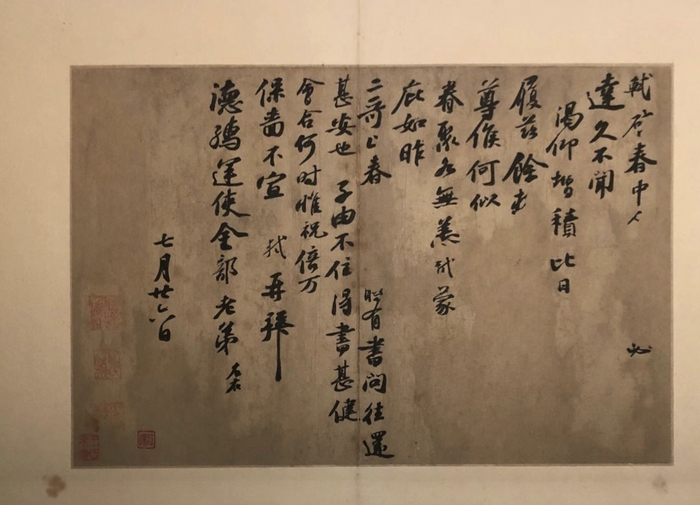 軾啓春中
達久不聞
渴仰增積比日
履茲餘
尊候何似
眷聚各無恙軾蒙
庇如昨
二哥上春 時有書問往還
甚安也 子由不住得書甚健
會合何時惟祝倍万
保嗇不宣 軾再拜
德孺運使金部老弟
七月廿六日